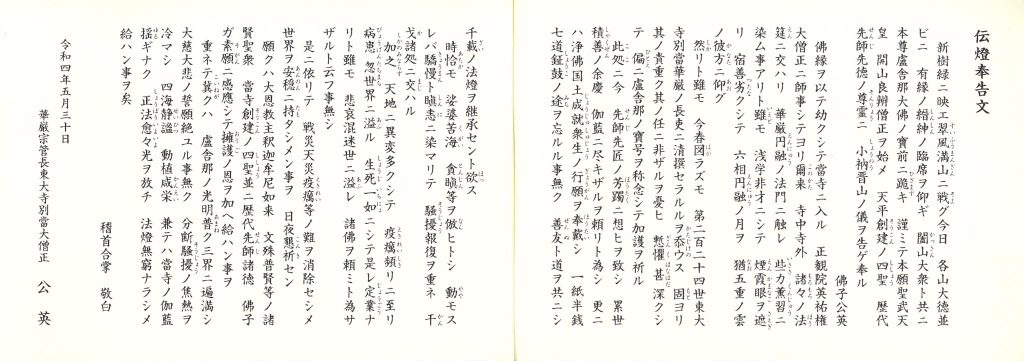 伝燈奉告文
佛子公英
新樹緑ニ映エ翠風満山ニ戦グ今日 各山大徳並
ビニ 有縁ノ緇紳ノ臨席ヲ仰ギ 闔山大衆ト共ニ
本尊盧舎那大佛ノ寶前ニ跪キ 謹ミテ本願聖武天
皇 開山良辨僧正ヲ始メ 天平創建ノ四聖 歴代
先師先徳ノ尊霊ニ 小衲晋山ノ儀ヲ告ゲ奉ル
佛縁ヲ以テ幼クシテ當寺ニ入ル 正観院英祐権
大僧正ニ師事シテヨリ爾来 寺中寺外 諸々ノ法
筵ニ交ハリ 華厳円融ノ法門ニ触レ 些カ薫習ニ
染ム事アリト雖モ 浅学非才ニシテ 煙霞眼ヲ遮
リ 宿善劣クシテ 六相円融ノ月ヲ 猶五重ノ雲
ノ彼方ニ仰グ
然リト雖モ 今春図ラズモ 第二百二十四世東大
寺別當華厳ノ長吏ニ清撰セラルルヲ忝ウス 固ヨリ
其ノ貴重ク其ノ任ニ非ザルヲ憂ヒ 慙懼 甚深クシ
テ 偏ニ盧舎那ノ寶号ヲ称念シテ加護ヲ祈ル
此処ニ今 先師先匠ノ芳躅ニ想ヒヲ致シ 累世
積善ノ余慶 伽藍ニ尽キザルヲ頼リト為シ 更ニ
ハ浄佛国土成就衆生ノ行願ヲ奉戴シ 一紙半銭
七道鉦鼓ノ迹ヲ忘ルル事無ク 善友ト道ヲ共ニシ
千載ノ法燈ヲ継承セント欲ス
時恰モ 娑婆苦海 貪瞋等ヲ倣ヒトシ 動モス
レバ驕慢ト瞋恚ニ染マリテ 騒擾報復ヲ重ネ 干
戈諸処ニ交ハル
加之 天地ニ異変多クシテ 疫癘頻リニ至リ
病患 忽世界ニ溢ル 生死一如ニシテ是レ定業ナ
リト雖モ 悲哀混迷世ニ溢レ 諸佛ヲ頼ミト為サ
ザルト云フ事無シ
是ニ依リテ 戦災天災疫癘等ノ難ヲ消除セシメ
世界ヲ安穏ニ持タシメン事ヲ 日夜懇祈セン
願クハ大恩教主釈迦牟尼如来 文殊普賢等ノ諸
賢聖衆 當寺創建ノ四聖並ニ歴代先師諸徳 佛子
ガ素願ニ感應シテ擁護ノ恩ヲ加ヘ給ハン事ヲ
重ネテ冀クハ 盧舎那ノ光明普ク三界ニ遍満シ
大慈大悲ノ誓願絶ユル事無ク 分断騒擾ノ焦熱ヲ
冷マシ 四海静謐 動植咸栄 兼テハ當寺ノ伽藍
揺ギナク 正法愈々光ヲ放チ 法燈無窮ナラシメ
給ハン事ヲ矣
稽首合掌 敬白
令和四年五月三十日
華厳宗管長東大寺別當大僧正 公英